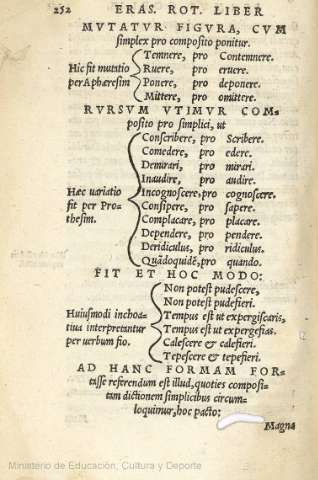 252 ERAS. ROT. LIBER
MVTATVR FIGVRA, CVM
simplex pro composito ponitur.
Hic fit mutatio
per Aphæresim
Temnere, pro Contemnere.
Ruere, pro eruere.
Ponere, pro deponere.
Mittere, pro omittere.
RVRSVM VTIMVR COM-
posito pro simplici, ut
Hæc uariatio
fit per Pro-
thesim.
Conscribere, pro Scribere.
Comedere, pro edere.
Demirari, pro mirari.
Inaudire, pro audire.
Incognoscere, pro cognoscere.
Consipere, pro sapere.
Complacare, pro placare.
Dependere, pro pendere.
Deridiculus, pro ridiculus.
Quãdoquidẽ, pro quando.
FIT ET HOC MODO:
Huiusmodi inchoa-
tiua interpretantur
per uerbum fio.
Non potest pudescere,
Non potest pudefieri.
Tempus est ut expergiscaris,
Tempus est ut expergefias.
Calescere & calefieri.
Tepescere & tepefieri.
AD HANC FORMAM FOR-
tasse referendum est illud, quoties composi-
tam dictionem simplicibus circum-
loquimur, hoc pacto:
Magna
Ministerio de Educación, Cultura y Deporte